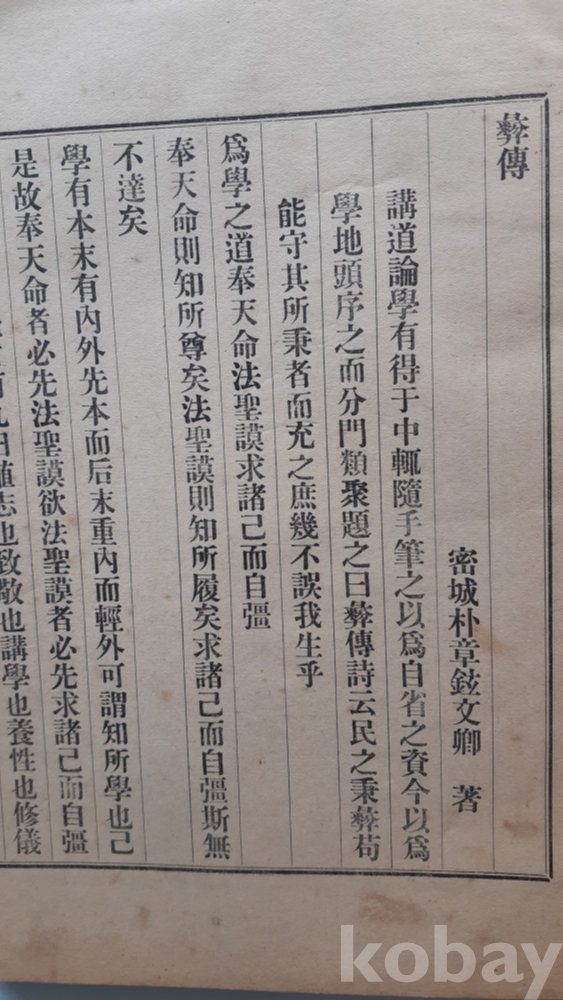 彛傳
密城朴章鉉文卿 著
講道論學有得于中輒隨手筆之以爲自省之資今以爲
學地頭序之而分門類聚題之曰彛傳詩云民之秉彛苟
能守其所秉者而充之庶幾不誤我生乎
爲學之道奉天命法聖謨求諸己而自彊
奉天命則知所尊矣法聖謨則知所履矣求諸己而自彊斯無
不達矣
學有本末有內外先本而后末重內而輕外可謂知所學也已
是故奉天命者必先法聖謨欲法聖謨者必先求諸己而自彊
曰植志也致敬也講學也養性也修儀
kobay